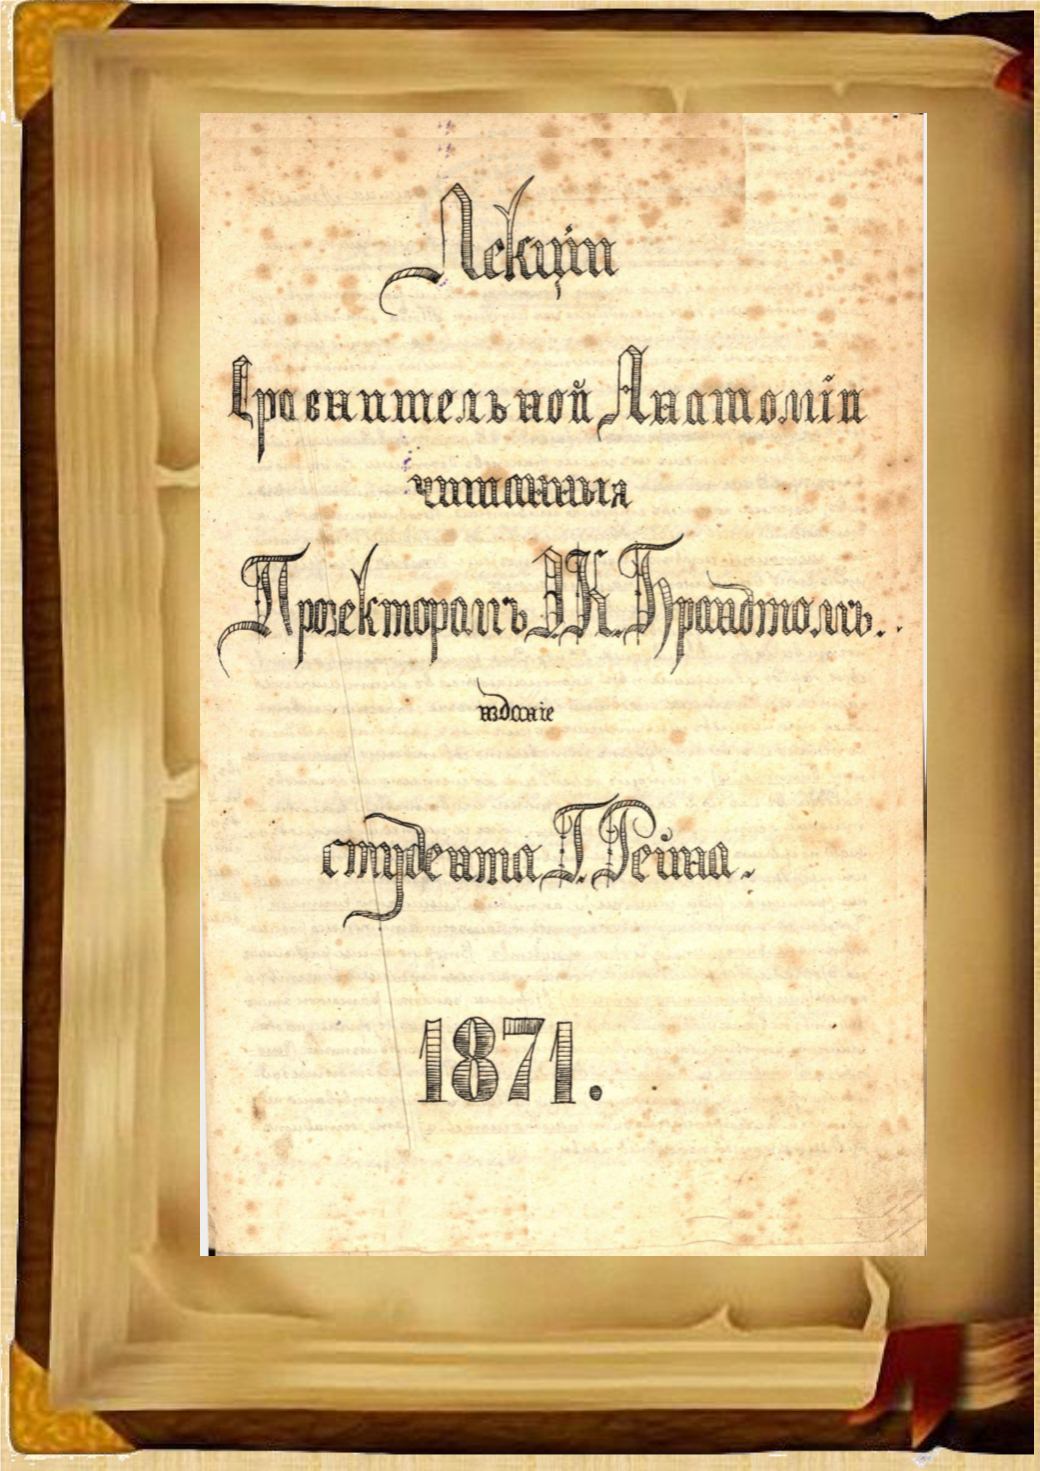 Лекціи
Сравнительной Анатоміи
читанныя
Прозекторамъ Э.К. Брандтомъ.
изданіе
студента Г. Рейна.
1871.